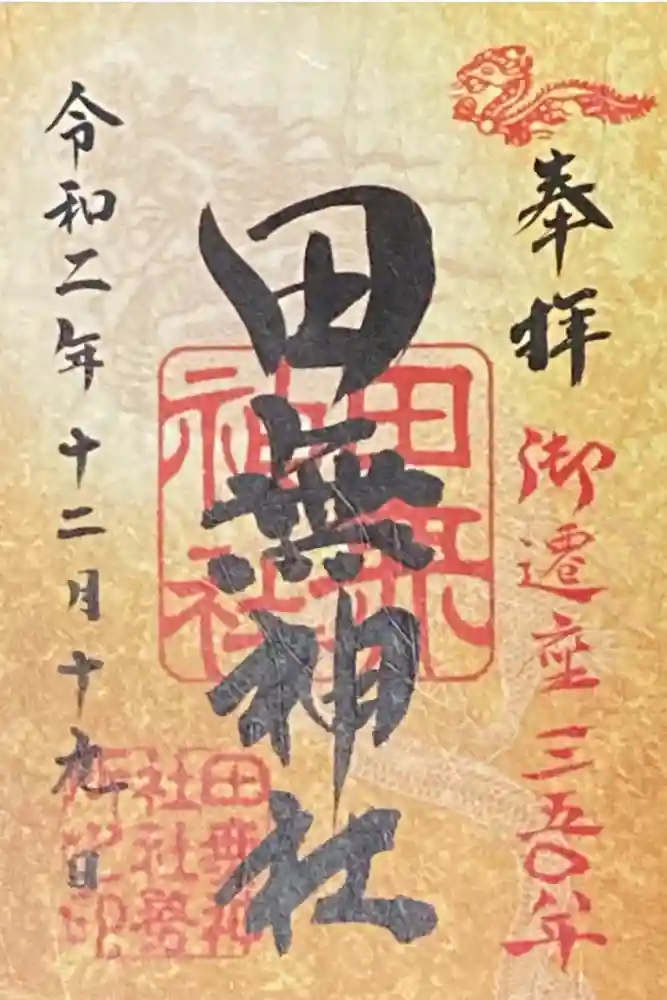 奉拝
御遷座三五〇年
田無神社
令和二年十二月十九日
田無
神社
田無神
社社務
所之印